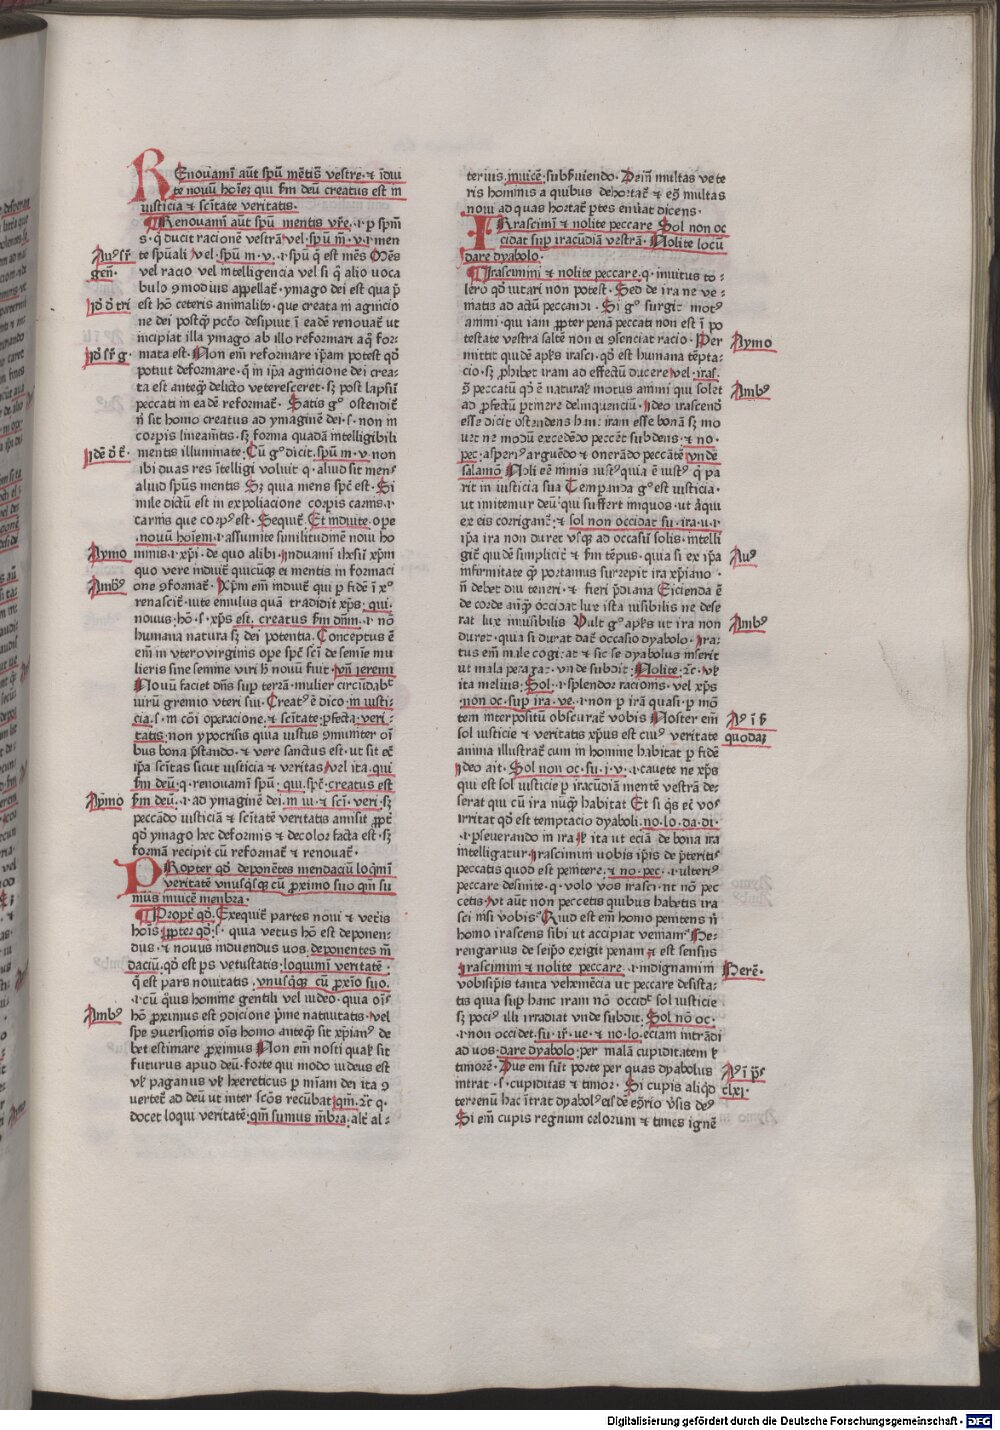 REnouamī aūt spū mētis vestre ⁊ īdui
te nouū hoīez qui ẜm deū creatus est in
iusticia ⁊ scītate veritatis·
Renouamī aūt spū mentis vr̄e· ·i· p spm̄
s· q̄ ducit racionē vestrā vel spū m̄· v· i· men
te spūali vel· spū m· v· i· spū q̄ est mēs
vel racio vel intelligencia vel si q̄ alio uoca
est hō ceteris animalibꝰ· que creata in agnicio
ne dei postq̄ pctō desipuit ī eadē renouat̄ ut
incipiat illa ymago ab illo reformari a q̄ for-
mata est· Non em̄ reformare ip̄am potest qđ
potuit deformare· q̄ in ip̄a agnicione dei crea-
ta est anteq̄ delicto veteresceret· sꝫ post lapsū
peccati in eadē reformat̄· Satis gͦ ostendit̄
ñ sit homo creatus ad ymaginē dei· s· non in
corpis lineamtis· sꝫ forma quadā intelligibili
mentis illuminate· Cū gͦ dicit· spū m· v· non
ibi duas res ītelligi voluit q· aliud sit mens
aliud spūs mentis Sꝫ quia mens spc̄ est· Si
mile dictū est in expoliacione corpis carnis· i·
carnis que corpꝰ est· Sequit̄· Et induite· ope
nouū hoīem· i· assumite similitudinē noui ho
minis· i· xpī· de quo alibi· Induamī ihesū xpm
quo vere induit̄ quicūq̨ ei mentis in formaci
one ꝯformat̄· Xpm em̄ induit̄ qui p fidē ī xͦ
renascit̄· uite emulus quā tradidit xpс· qui·
nouus· hō· s· xpс est· creatus ẜm dm̄· i· nō
humana natura sꝫ dei potentia· Conceptus ē
em̄ in vtero virginis ope spc̄ scī de semīe mu
lieris sine semine viri hͦ nouū fuit· vn̄ ieremi
Nouū faciet dn̄s sup terrā· mulier circūdabͭ
uirū gremio vteri sui· Creatꝰ ē dico· in iusti-
cia· s· in cōi operacione· ⁊ scītate· pfecta· veri-
tatis· non ypocrisis quia iustus ꝯmuniter oī
bus bona p̄stando· ⁊ vere sanctus est· ut sit et̄
ip̄a scītas sicut iusticia ⁊ veritas vel ita· qui
ẜm deū· q· renouamī spū· qui· spc̄· creatus est
ẜm deū· i· ad ymaginē dei· in iu· ⁊ scī· veri· sꝫ
peccādo iusticiā ⁊ scītatē veritatis amisit ꝓpt̄
qđ ymago hec deformis ⁊ decolor facta est· sꝫ
formā recipit cū reformat̄ ⁊ renouat̄·
PRopter qđ deponētes mendaciū loq̄mī
veritatē vnusq̄sq̨ cū proximo suo qm̄ su
mus inuicē menbra·
Propt̄ qđ· Exequit̄ partes noui ⁊ veteris
hoīs ꝓpter qđ· s· quia vetus hō est deponen-
dus· ⁊ nouus induendus uos· deponentes m̄
daciū· qđ est ps vetustatis· loquimī veritatē·
q̄ est pars nouitatis· vnusq̄sq̨ cū ꝓxīo suo·
·i· cū q̄uis homine gentili vel iudeo· quia oīs
hō ꝓximus est ꝯdicione p̄me natiuitatis· vel
spe ꝯuersionis oīs homo anteq̄ sit xpīanꝰ de
bet estimare ꝓximus Non em̄ nosti qual̄ sit
futurus apud deū· forte qui modo iudeus est
vel paganus vel hereticus p mīam dei ita ꝯ
vertet̄ ad deū ut inter scōs recūbat qm̄· ⁊c̄ q·
docet loqui veritatē· qm̄ sumus mēbra· alt̄ al-
terius· inuicē· subẜuiendo· Deim̄ multas vete
ris hominis a quibus dehortat̄ ⁊ eꝯ multas
noui ad quas hortat̄ ptes enūat dicens·
IRrascimī ⁊ nolite peccare Sol non oc
cidat sup iracūdiā vestrā· Nolite locū
dare dyabolo·
Irascimini ⁊ nolite peccare· q· inuitus to-
lero qđ uitari non potest· Sed de ira ne ve-
niatis ad actū peccandi· Si gͦ surgit motꝰ
animi· qui iam ꝓpter penā peccati non est ī po
testate vestra saltē non ei ꝯsenciat racio· Per
mittit quidē apl̄s irasci· qđ est humana tēpta-
cio· sꝫ ꝓhibet iram ad effectū ducere· vel· iras·
ꝯ peccatū qđ ē naturał motus animi qui solet
ad ꝓfectū ptinere delinquenciū· Ideo irascend
esse dicit ostendens hanc iram esse bonā sꝫ mo
uet ne modū excedēdo peccet̄ subdens· ⁊ no·
pec· asperiꝰ arguēdo ⁊ onerādo peccātē vnde
salamō Noli eē nimis iustꝰ quia ē iustꝰ q̄ pa
rit in iusticia sua Temperanda gͦ est iusticia·
ut imitemur deū· qui suffert iniquos· ut aliqui
ex eis corrigant̄· ⁊ sol non occidat su· ira· v· i·
ip̄a ira non duret vsq̨ ad occasū solis· intelli
git̄ quidē simplicit̄ ⁊ ẜm tēpus· quia si ex ip̄a
infirmitate q̄ portamus surrepit ira xpīano·
ñ debet diu teneri· ⁊ fieri p̄diana Eicienda ē
de corde anteq̄ occidat lux ista uisibilis ne dese
rat lux inuisibilis Vult gͦ apl̄s ut ira non
duret· quia si durat dat̄ occasio dyabolo· Ira-
tus em̄ male cogitat ⁊ sic se dyabolus inserit
ut mala peragat· vnde subdit· Nolite· ⁊c̄· vel
ita melius· Sol· i· splendor racionis· vel xpс
non oc· sup ira· ve· i· non p irā quasi p mō
tem interpositū obscuratē vobis Noster em̄
sol iusticie ⁊ veritatis xpс est cuiꝰ veritate
anima illustrat̄ cum in homine habitat p fidē
Ideo ait· Sol non oc· su· i· v· i· cauete ne xpс
qui est sol iusticie p iracūdiā mentē vestrā de-
serat qui cū ira nūq̄ habitat Et si q̄s et̄ vos
irritat qđ est temptacio dyaboli· no· lo· da· di·
·i· ꝑseuerando in ira vel ita ut eciā de bona ira
intelligatur· Irascimini uobis ip̄is de p̄teritis
peccatis quod est penitere· ⁊ no· pec· i· ulteriꝰ
peccare desinite· q· volo vos irasci· ne nō pec
cetis Ut aūt non peccetis quibus habetis ira
sci nisi vobisͩ Quid est em̄ homo penitens ñ
homo irascens sibi ut accipiat veniam· Be-
rengarius de seipo exigit penam ⁊ est sensus
Irascimini ⁊ nolite peccare· i· indignamin̄
vobisip̄is tanta vehemēcia ut peccare desista-
tis quia sup hanc iram nō occidet sol iusticie
sꝫ pociꝰ illi irradiat vnde subdit· Sol nō oc·
·i· non occidet· su· ir· ve· ⁊ no· lo· eciam intrādi
ad uos· dare dyabolo· per malā cupiditatem vel
timorē· Due em̄ sūt porte per quas dyabolus
intrat· s· cupiditas ⁊ timor· Si cupis aliqđ
terrenū hac ītrat dyabolꝰ
Si em̄ cupis regnum celorum ⁊ times ignē
Aymo
Ambꝰ
Aymo
Ambꝰ
Aymo
Ambꝰ
Auꝰ
Ambꝰ
quodaz
Berē·
clxi·
Digitalisierung gefördert durch die Deutsche Forschungsgemeinschaft - DFG